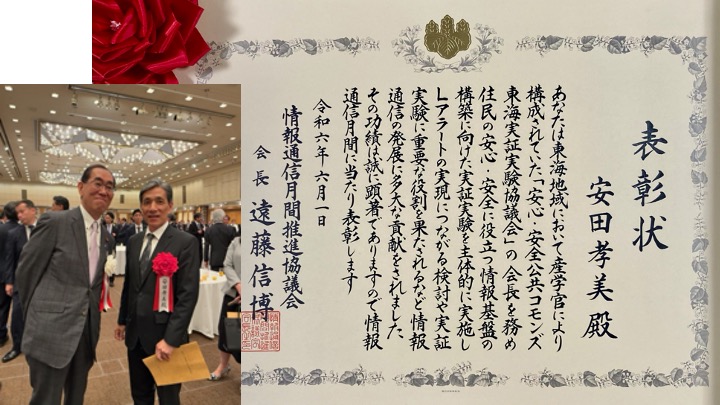 表彰状
安田孝美殿
あなたは東海地域において産学官により
構成されていた「安心・安全公共コモンズ
東海実証実験協議会」の会長を務め
住民の安心・安全に役立つ情報基盤の
構築に向けた実証実験を主体的に実施し
Lアラートの実現につながる検討や実証
実験に重要な役割を果たされるなど情報
通信の発展に多大な貢献をされました
その功績は誠に顕著でありますので情報
通信月間に当たり表彰します
令和六年六月一日
情報通信月間推進協議会
会長 遠藤信博
安田孝美